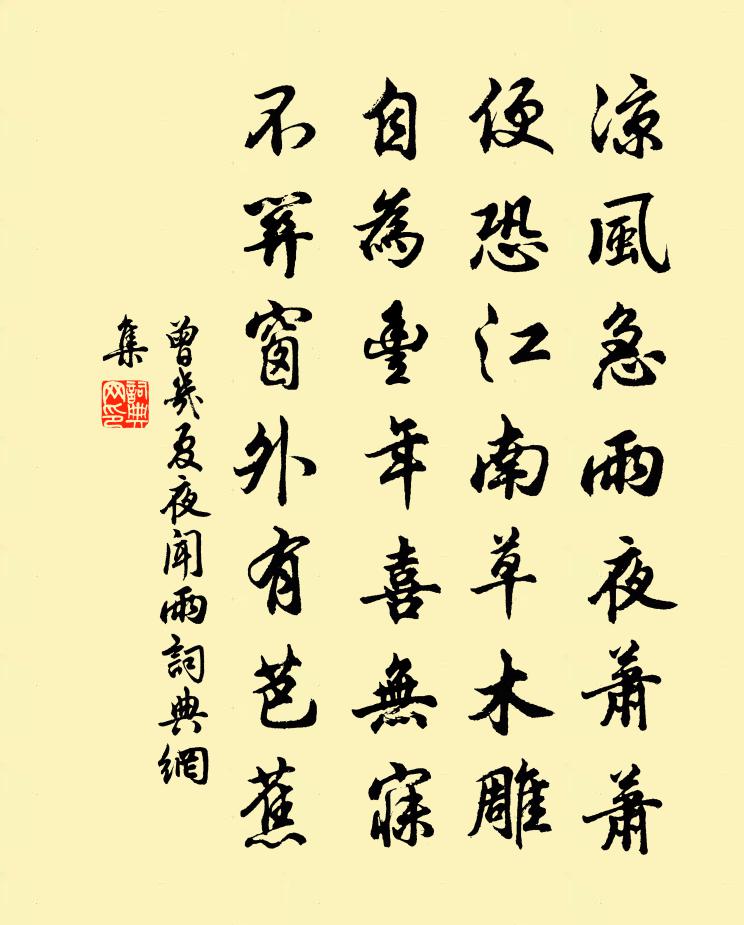 涼風急雨夜蕭蕭
便恐江南草木雕
自為豐年喜無寐
不關窗外有芭蕉
曾幾夏夜聞雨詞典網
集
詞典
网印